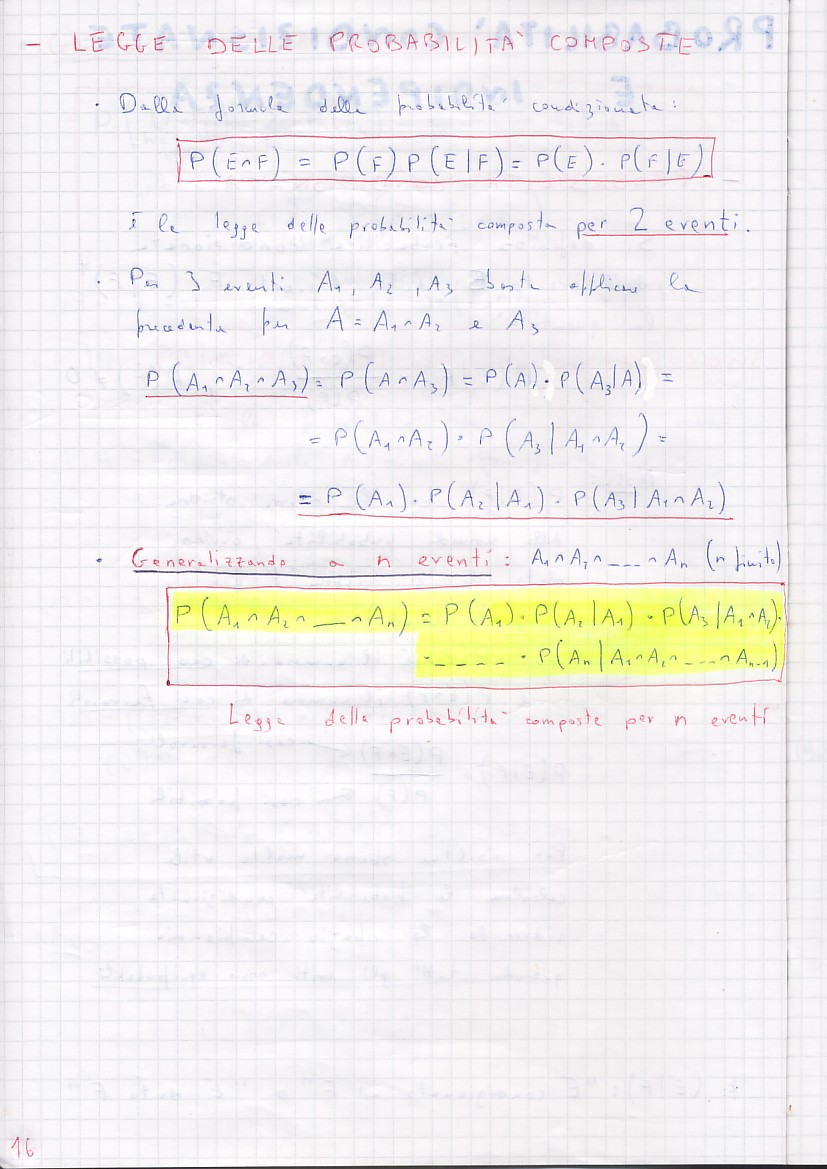 - LEGGE DELLE PROBABILITA' COMPOSTE
· Dalla formula delle probabilità condizionata:
P(E∩F) = P(F) P(E|F) = P(E) · P(F|E)
È la legge delle probabilità composta per 2 eventi.
· Per 3 eventi A₁, A₂, A₃ basta applicare la
precedente per A = A₁∩A₂ e A₃
P(A₁∩A₂∩A₃) = P(A∩A₃) = P(A) · P(A₃|A) =
= P(A₁∩A₂) · P(A₃|A₁∩A₂) =
= P(A₁) · P(A₂|A₁) · P(A₃|A₁∩A₂)
· Generalizzando a n eventi: A₁∩A₂∩----∩Aₙ (n finito)
P(A₁∩A₂∩__∩Aₙ) = P(A₁) · P(A₂|A₁) · P(A₃|A₁∩A₂)·
·----- · P(Aₙ|A₁∩A₂∩----∩Aₙ₋₁)
Legge della probabilità composte per n eventi
16